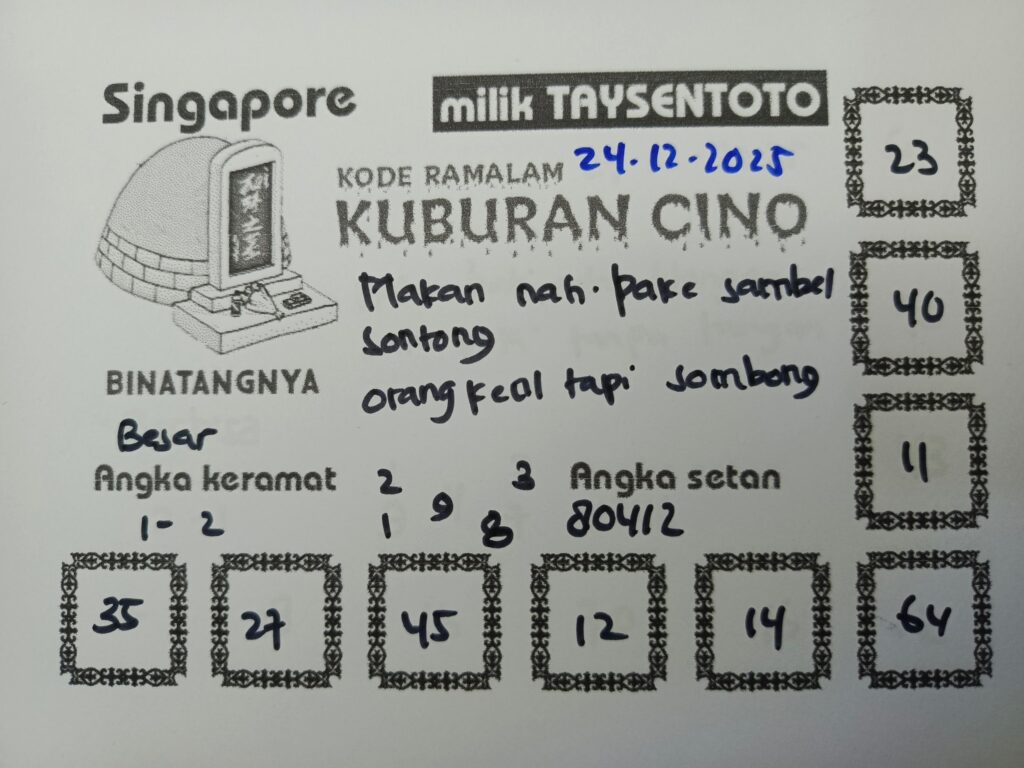 Singapore
milik TAYSENTOTO
24.12.2025
KODE RAMALAM
KUBURAN CINO
Makan nah. pake sambel
sontong
orang kecil tapi sombong
BINATANGNYA
Besar
Angka keramat
1-2
2 3
9
1 8
Angka setan
80412
23
40
11
35 27 45 12 14 64